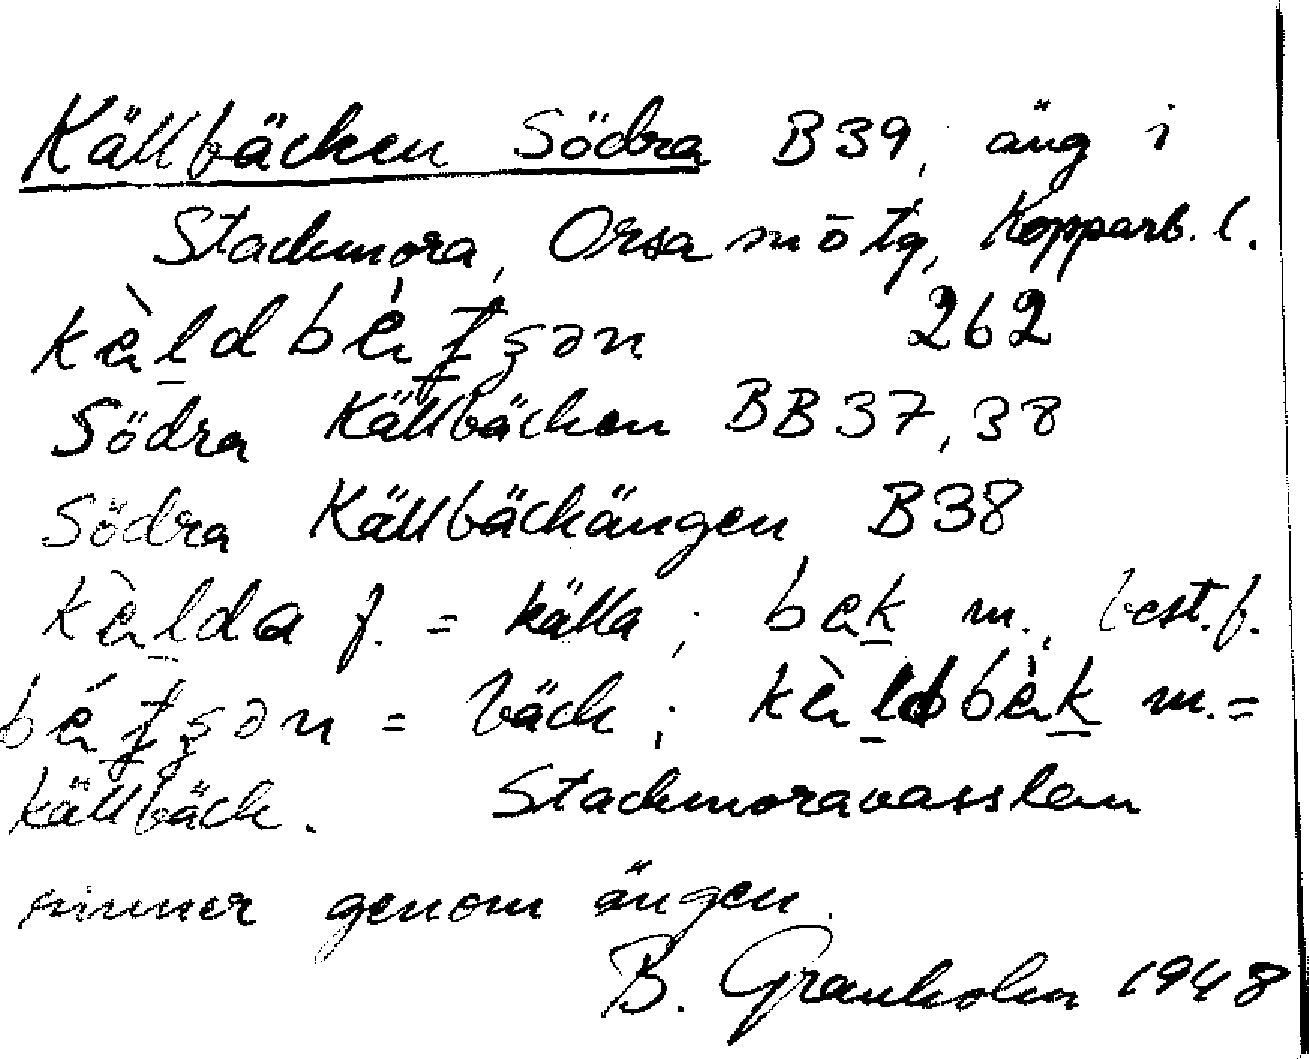 Källbäcken Södra B39, äng i
Stackmora, Orsa sn ö tg, Kopparb. l.
kèḷdbèt̠ʂən 262
Södra Källbäcken BB37, 38
Södra Källbäckängen B38
kèlda f. = källa; bek m., best. f.
bét̠ʂən = bäck; kèldbèk m. =
källbäck. Stackmoravasslan
rinner genom ängen.
B. Granholm 1948